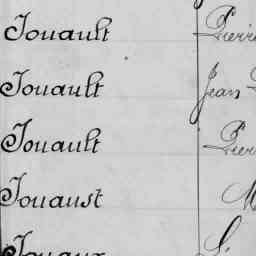 Jouault Pierre
Jouault Jean
Jouault Pier
Jouaust M
Jouaux